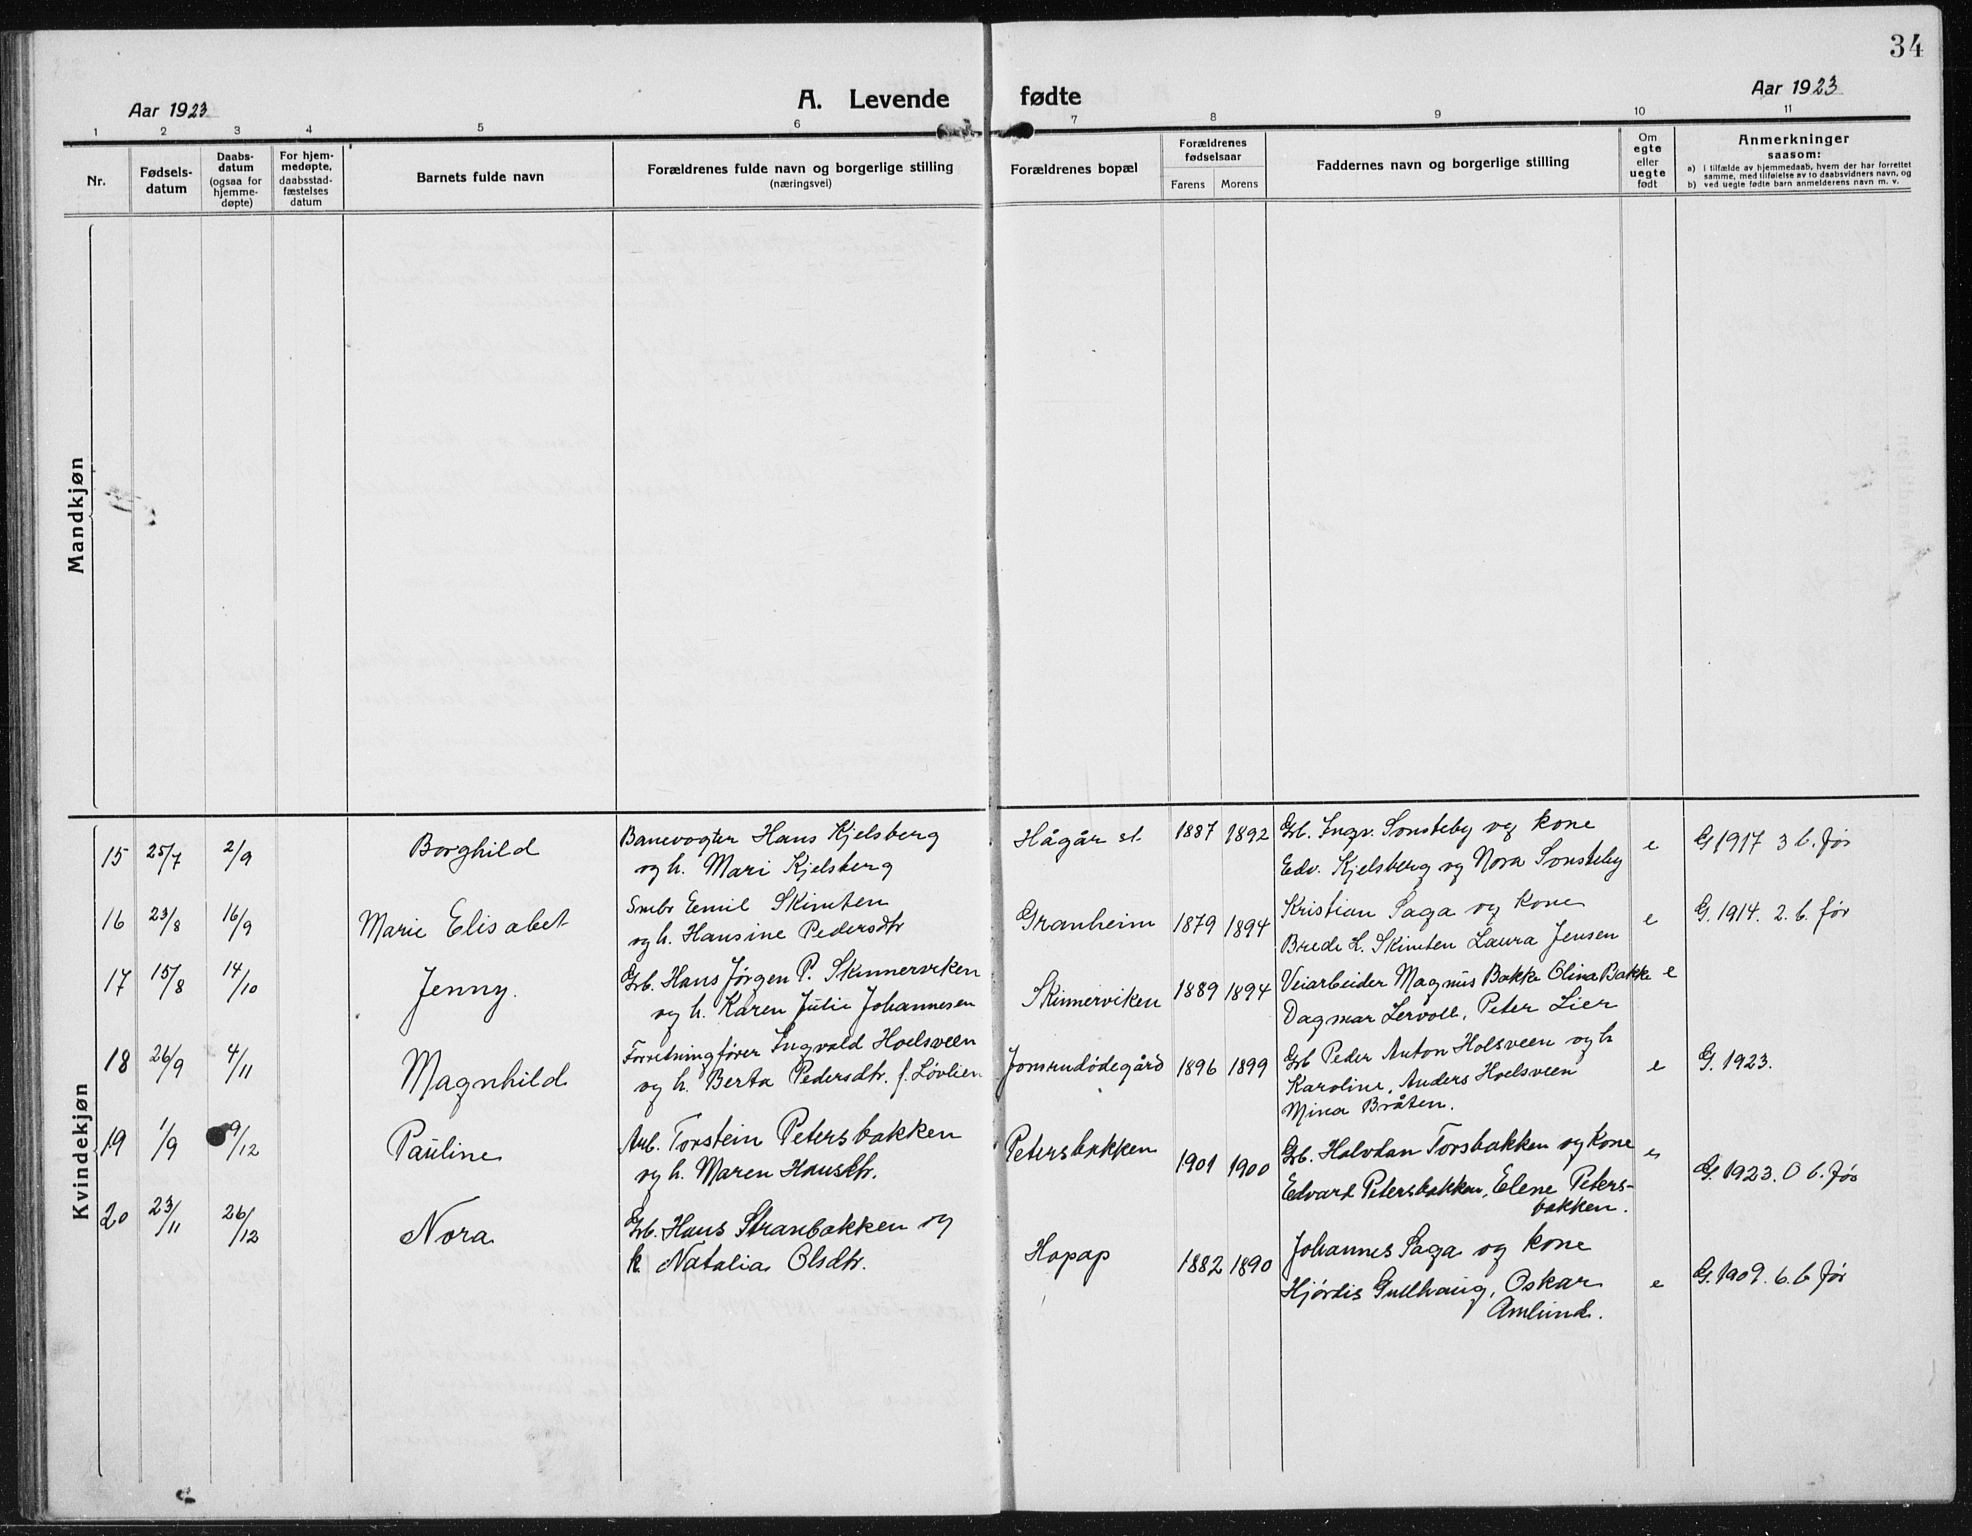 34
Aar 1923
A. Levende fødte
Aar 1923
1 2 3 4 5 6 7 8 9 10 11
Nr.
Fødsels-
datum
Daabs-
datum
(ogsaa for
hjemme-
døpte)
For hjem-
medøpte,
daabsstad-
fæstelses
datum
Barnets fulde navn
Forældrenes fulde navn og borgerlige stilling
(næringsvei)
Forældrenes bopæl
Forældrenes
fødselsaar
Farens Morens
Faddernes navn og borgerlige stilling
Om
egte
eller
uegte
født
Anmerkninger
saasom:
a) i tilfælde av hjemmedaab, hvem der har forrettet
samme, med tilføielse av to daabsvidners navn, og
b) ved uegte fødte barn anmelderens navn m. v.
Mandkjøn
Kvindekjøn
15 25/7 2/9 Borghild
Banevogter Hans Kjelsberg
og h. Mari Kjelsberg
Hågår st. 1887 1892
Grb. Ingv. Sønsteby og kone
Edv. Kjelsberg og Nora Sønsteby
e G 1917 3 b. før
16 23/8 16/9 Marie Elisabet
Smbr Emil Skinsten
og h. Hansine Pedersdtr
Granheim 1879 1894
Kristian Saga og kone
Brede L. Skimten Laura Jensen
e G. 1914. 2. b. før
17 15/8 14/10 Jenny.
Grb. Hans Jørgen P. Skinnerviken
og h. Karen Julie Johannesen
Skinnerviken 1889 1894
Veiarbeider Magnus Bakke Olina Bakke e
Dagmar Lervoll, Peter Lier
18 26/9 4/11 Magnhild
Forretningfører Ingvald Hoelsveen
og h. Berta Pedersdtr. f. Løvlien
Jonsrudødegård 1896 1899
Grb Peder Anton Holsveen og h
Karoline, Anders Hoelsveen
Mina Bråten.
e G. 1923.
19 1/9 9/12 Pauline
Arb. Torstein Petersbakken
og h. Maren Hansdtr.
Petersbakken 1901 1900
Grb. Halvdan Torsbakken og kone
Edvard Petersbakken, Elene Peters-
bakken.
e G. 1923. 0 b. før
20 23/11 26/12 Nora
Grb. Hans Stranbakken og
h. Natalia Olsdtr.
Hapap 1882 1890
Johannes Saga og kone
Hjørdis Gullhaug, Oskar
Amlund.
e G. 1909. 6. b før